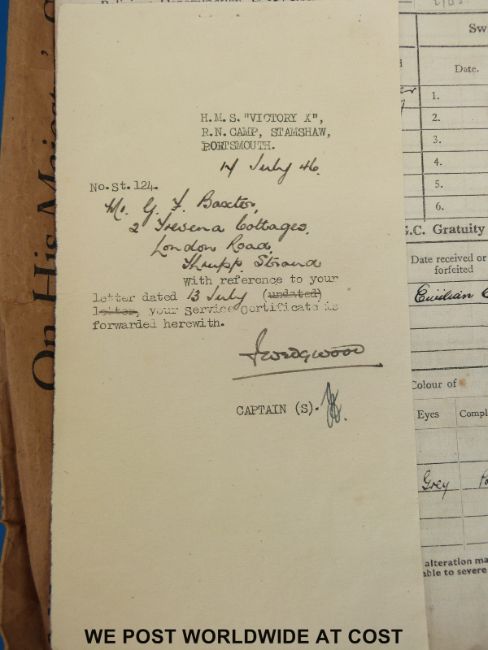 H.M.S. "VICTORY X",
R.N. CAMP, STAMSHAW,
PORTSMOUTH.
14 July 46.
No. St. 124.
Mr. G. F. Baxter,
2 Trevena Cottages,
London Road,
Thrupp. Strand
with reference to your
letter dated 13 July (undated)
letter, your Service Certificate is
forwarded herewith.
J Wedgwood
CAPTAIN (S).
WE POST WORLDWIDE AT COST
On His Majesty's
Sw
Date.
1.
2.
3.
4.
5.
6.
G.C. Gratuity
Date received or
forfeited
Civilian
Colour of
Eyes
Compl
Grey
alteration ma
able to severe